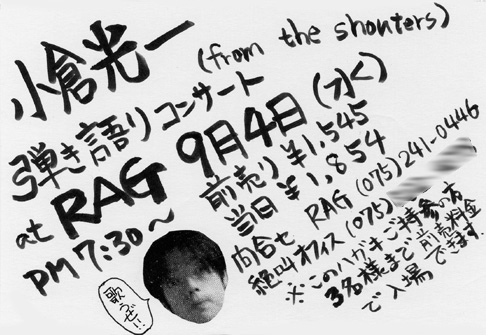 小倉光一
(from the shouters)
弾き語りコンサート
at RAG 9月4日(水)
PM 7:30〜
前売り ¥1,545
当日 ¥1,854
問合せ RAG (075)241-0446
絶叫オフィス (075)
※このハガキご持参の方
3名様まで前売料金
で入場できます.
歌うぜ!!